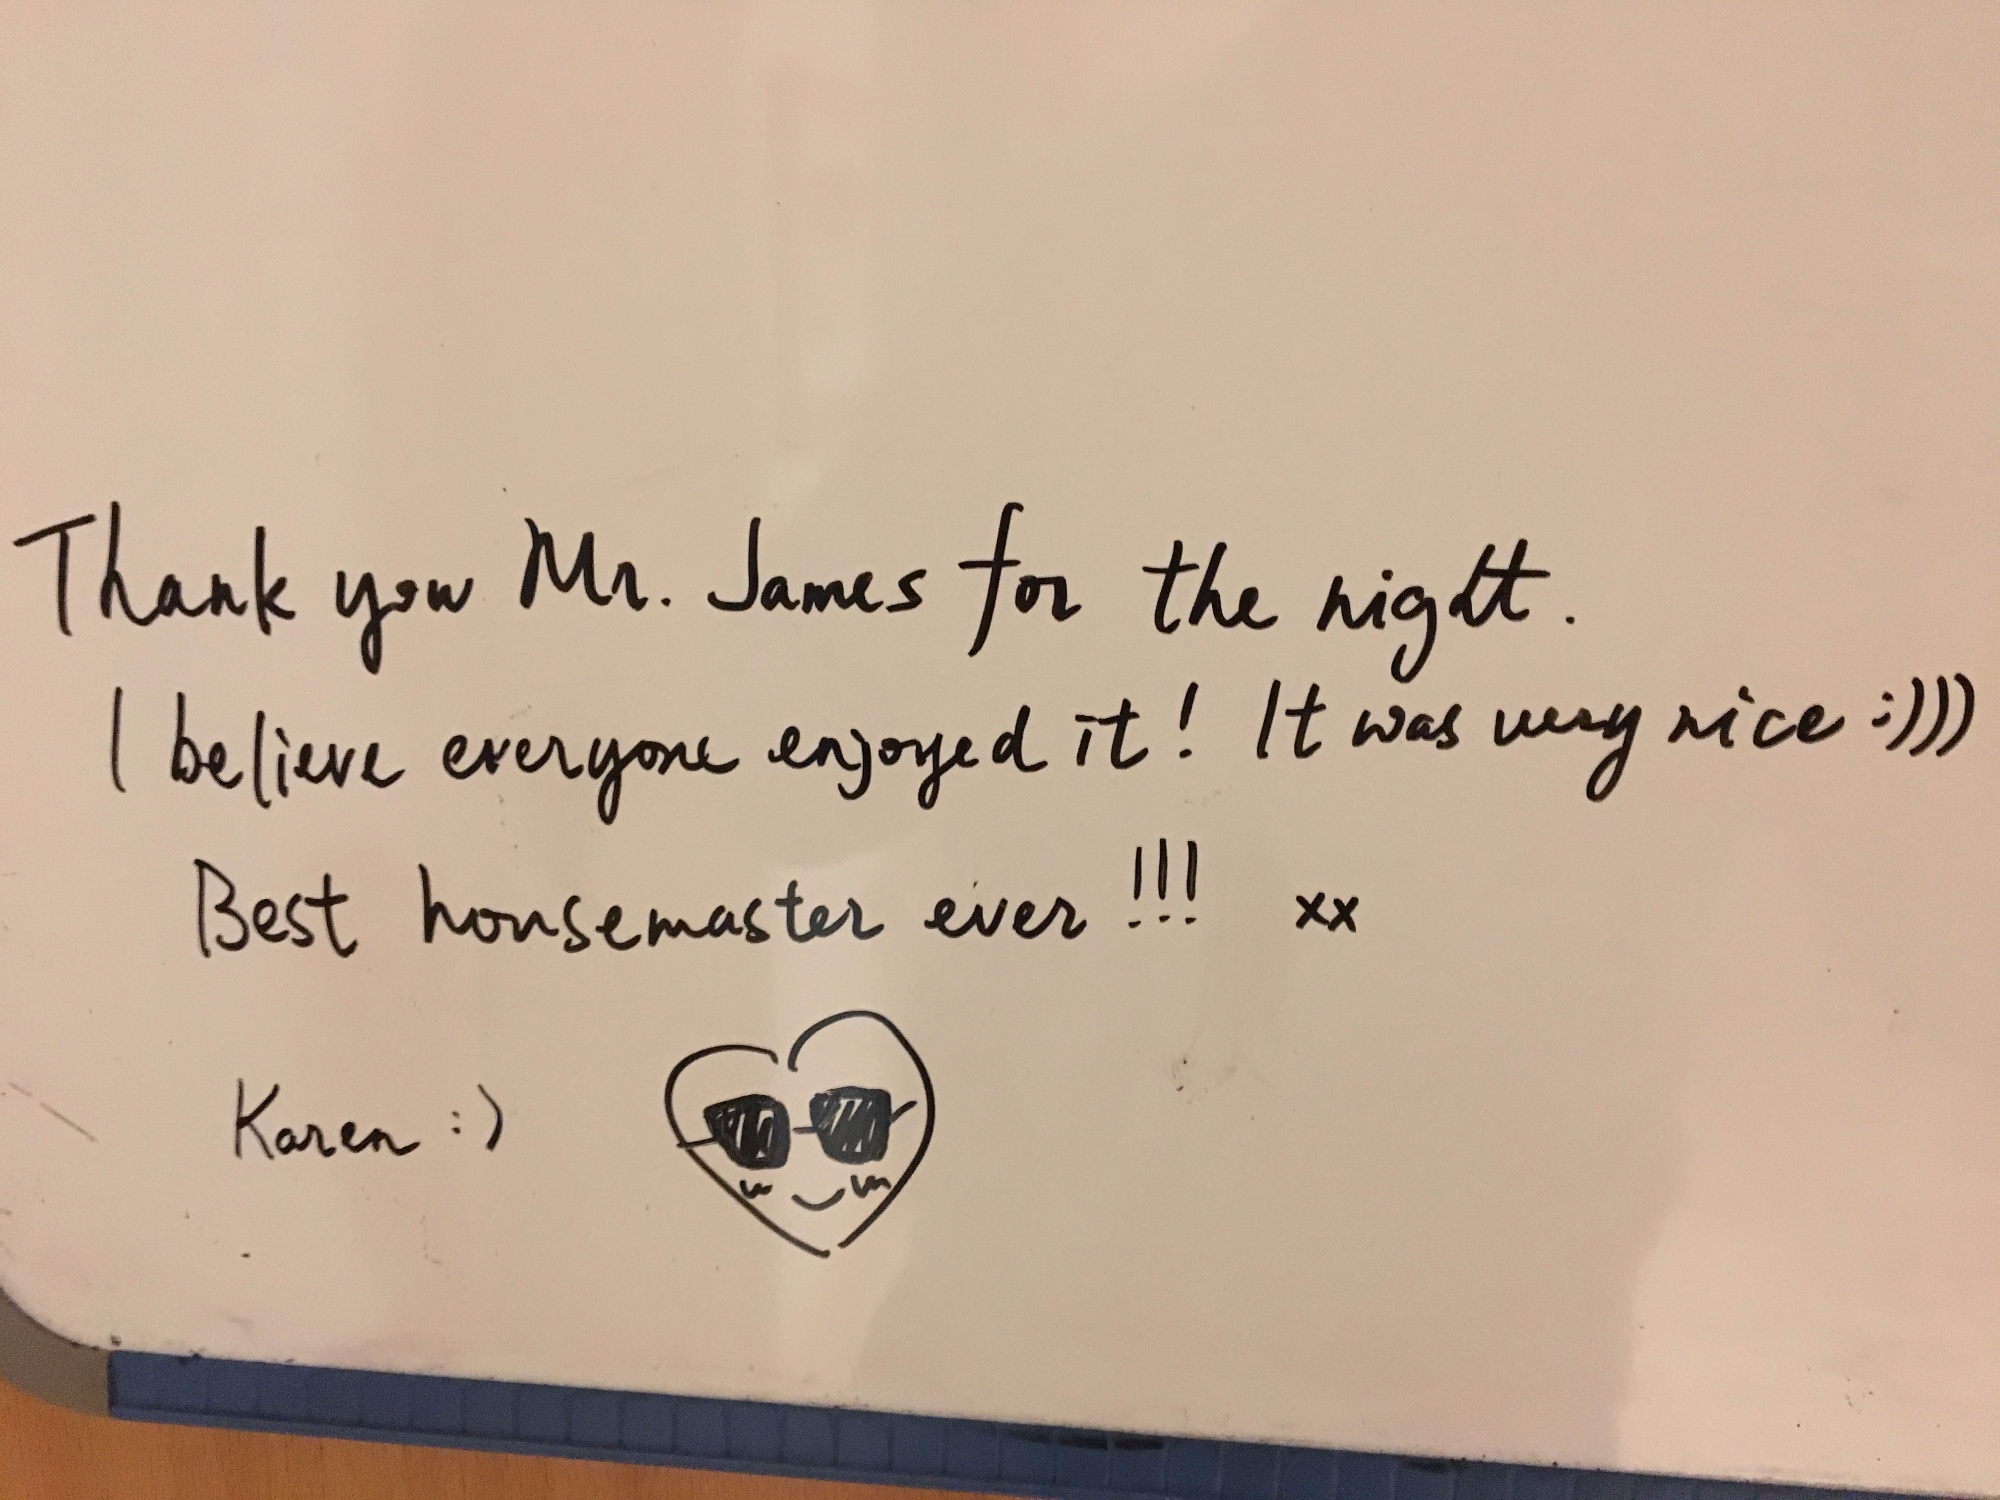 Thank you Mr. James for the night.
I believe everyone enjoyed it! It was very nice :)))
Best housemaster ever !!! xx
Karen :)